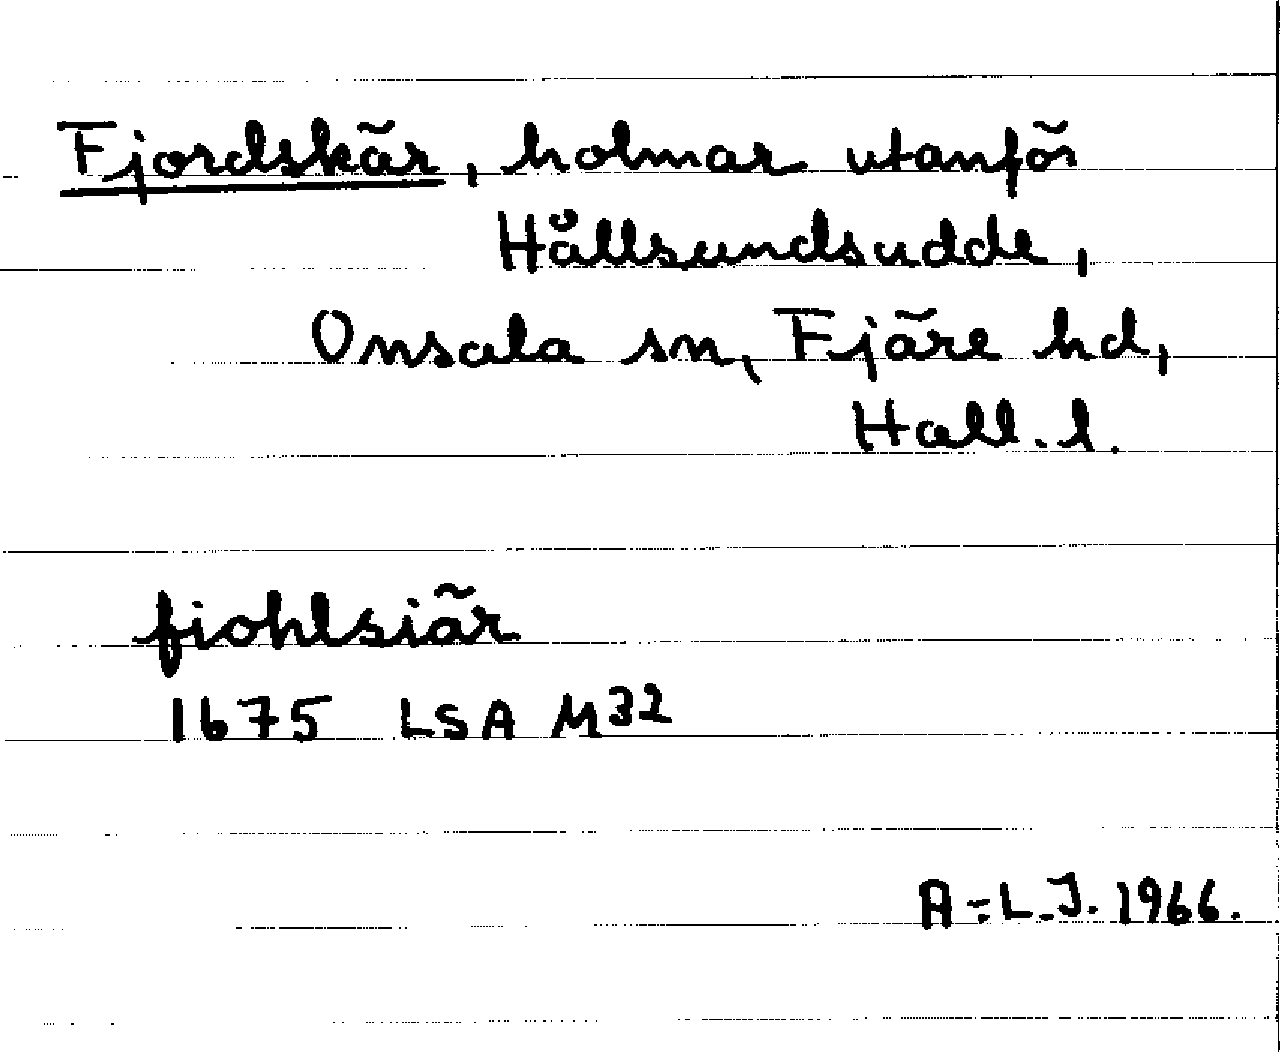 Fjordskär, holmar utanför
Hållsundsudde,
Onsala sn, Fjäre hd,
Hall. l.
fiohlsiär
1675 LSA M32
A-L.J. 1966.